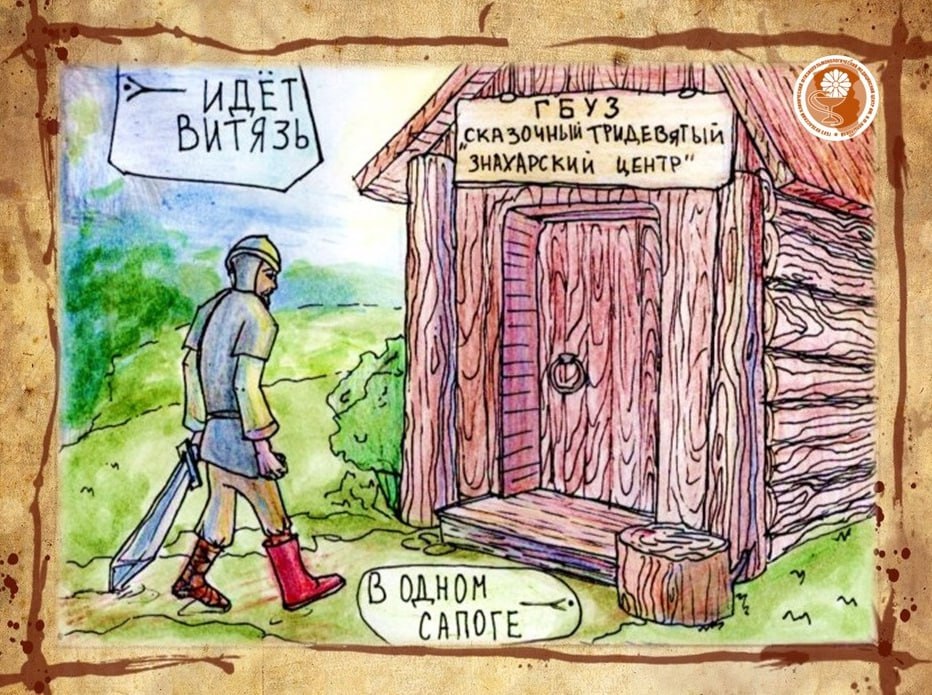 ИДЁТ
ВИТЯЗЬ
ГБУЗ
"СКАЗОЧНЫЙ ТРИДЕВЯТЫЙ
ЗНАХАРСКИЙ ЦЕНТР"
В ОДНОМ
САПОГЕ